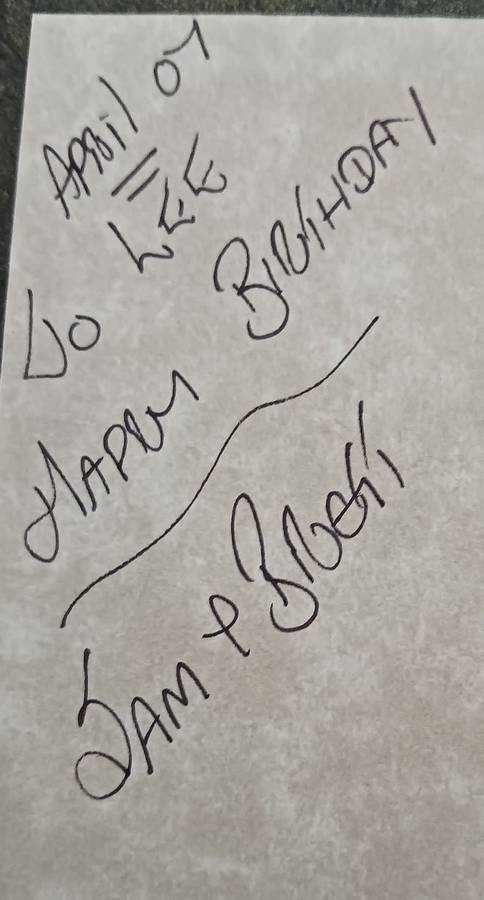 APRil 07
To LEE
HAPPY BIRTHDAY
SAM +